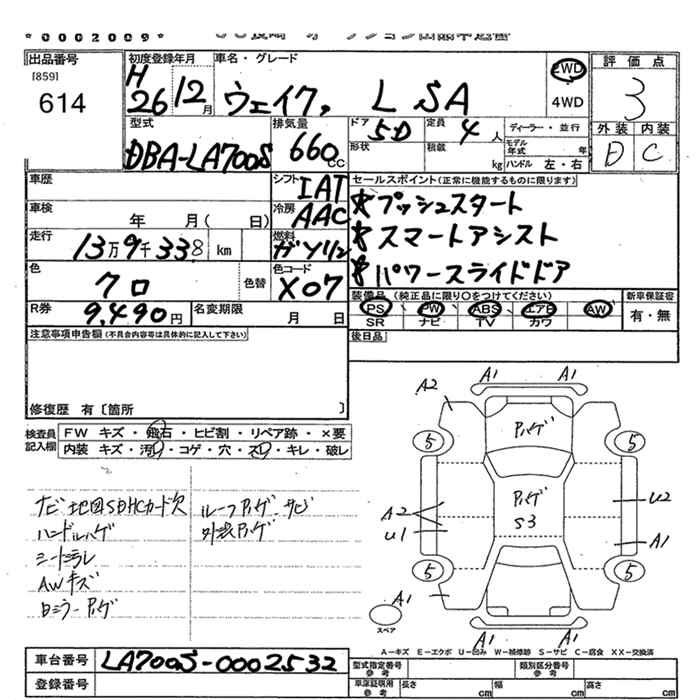 *0002009*
出品番号
[859]
614
初度登録年月
H
26 12月
車名・グレード
ウェイク, L SA
2WD
4WD
評価点
3
外装 内装
D C
型式
DBA-LA700S
排気量
660cc
ドア 5D
形状
定員 4人
積載 kg
ディーラー・並行
モデル年式 年
ハンドル 左・右
車歴
シフト IAT
車検 年 月( 日)
冷房 AAC
走行 13万9千338km
燃料 ガソリン
色 クロ
色替
色コード X07
R券 9,490円
名変期限 月 日
セールスポイント(正常に機能するものに限ります)
*プッシュスタート
*スマートアシスト
*パワースライドドア
装備品 (純正品に限り○をつけてください)
PS PW ABS エアB AW
SR ナビ TV カワ
新車保証書
有・無
後日品
注意事項申告欄(不具合内容等は具体的に記入して下さい)
修復歴 有〔箇所 〕
検査員記入欄
FW キズ・飛石・ヒビ割・リペア跡・×要
内装 キズ・汚レ・コゲ・穴・スレ・キレ・破レ
ナビ地図SDHCカード欠
ハンドルハゲ
シートスレ
AWキズ
ルーフハゲ・サビ
外装ハゲ
A2 A1 A1
ハゲ
5 5
ハゲ
S3
A2
U1
U2
A1
5 5
A1
スペア
A1 A1
A-キズ E-エクボ U-凹み W-補修跡 S-サビ C-腐食 XX-交換済
車台番号 LA700S-0002532
登録番号
型式指定番号 参考
類別区分番号 参考
車庫証明用 参考
長さ cm 幅 cm 高さ cm